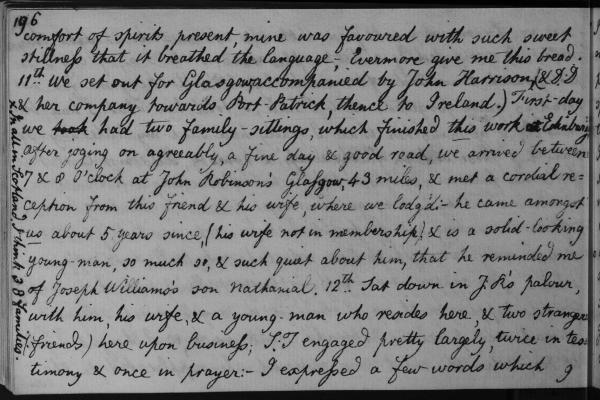 196
comfort of spirits present, mine was favoured with such sweet
stillness that it breathed the language,- Evermore give me this bread.
11th We set out for Glasgow accompanied by John Harrison, (& D.D
& her company towards Port-Patrick, thence to Ireland.) First-day
we took had two family-sittings, which finished this work at Edinburg
x After joging on agreeably, a fine day & good road, we arrived between
7 & 8 O'clock at John Robinson's Glasgow, 43 miles, & met a cordial re=
ception from this friend & his wife, where we lodg'd:- he came amongst
us about 5 years since, (his wife not in membership) & is a solid-looking
young-man, so much so, & such quiet about him, that he reminded me
of Joseph Williams's son Nathanial. 12th Sat down in J.R's palour,
with him, his wife, & a young-man who resides here, & two strangers
(friends) here upon business; S.T engaged pretty largely, twice in tes=
timony & once in prayer:- I expressed a few words which
x In all in Scotland I think 39 families.